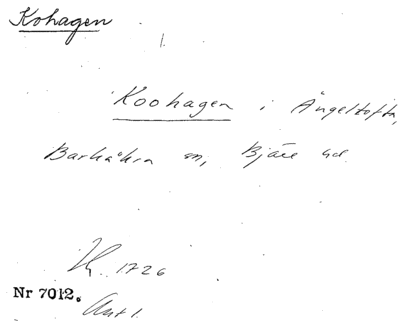 Kohagen
Koohagen i Ängeltofta,
Barkåkra sn, Bjäre hd
1726
Nr 7012.